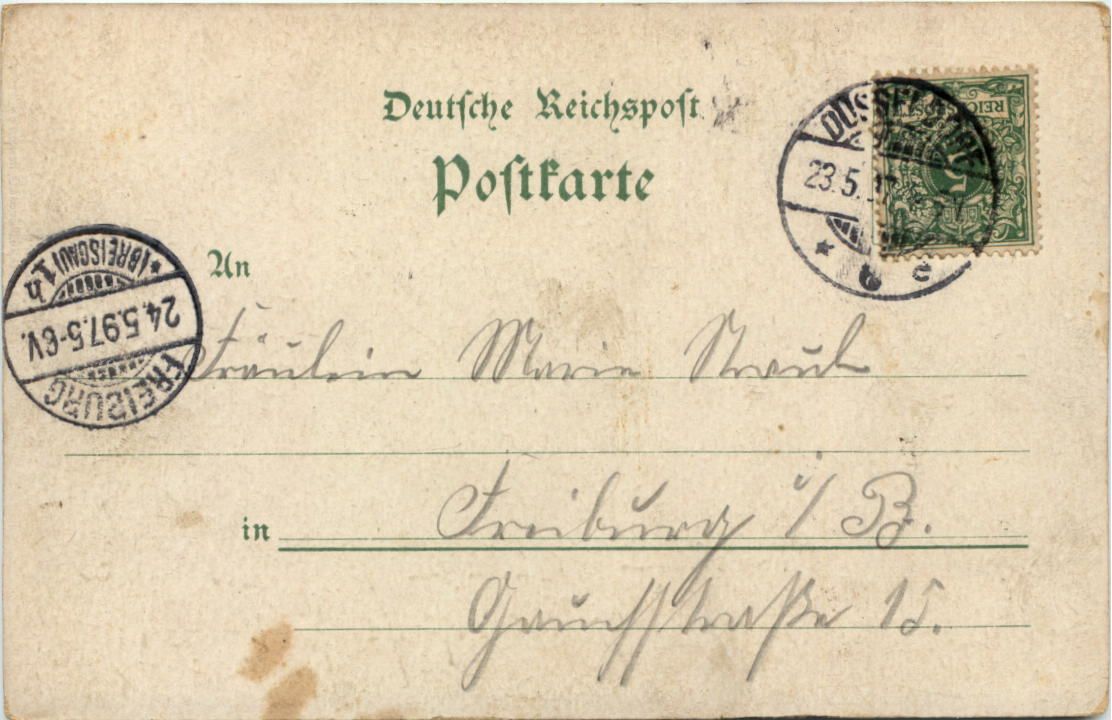 Deutsche Reichspost
Postkarte
REICHSPOST
5
DÜSSELDORF
23.5.97
* b c
An
Fräulein Marie
FREIBURG
24.5.97. 5-6V.
* (BREISGAU) 1h
in Freiburg i/B.
15.